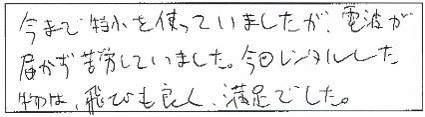 今まで特小を使っていましたが、電波が
届かず苦労していました。今回レンタルした
物は、飛びも良く、満足でした。